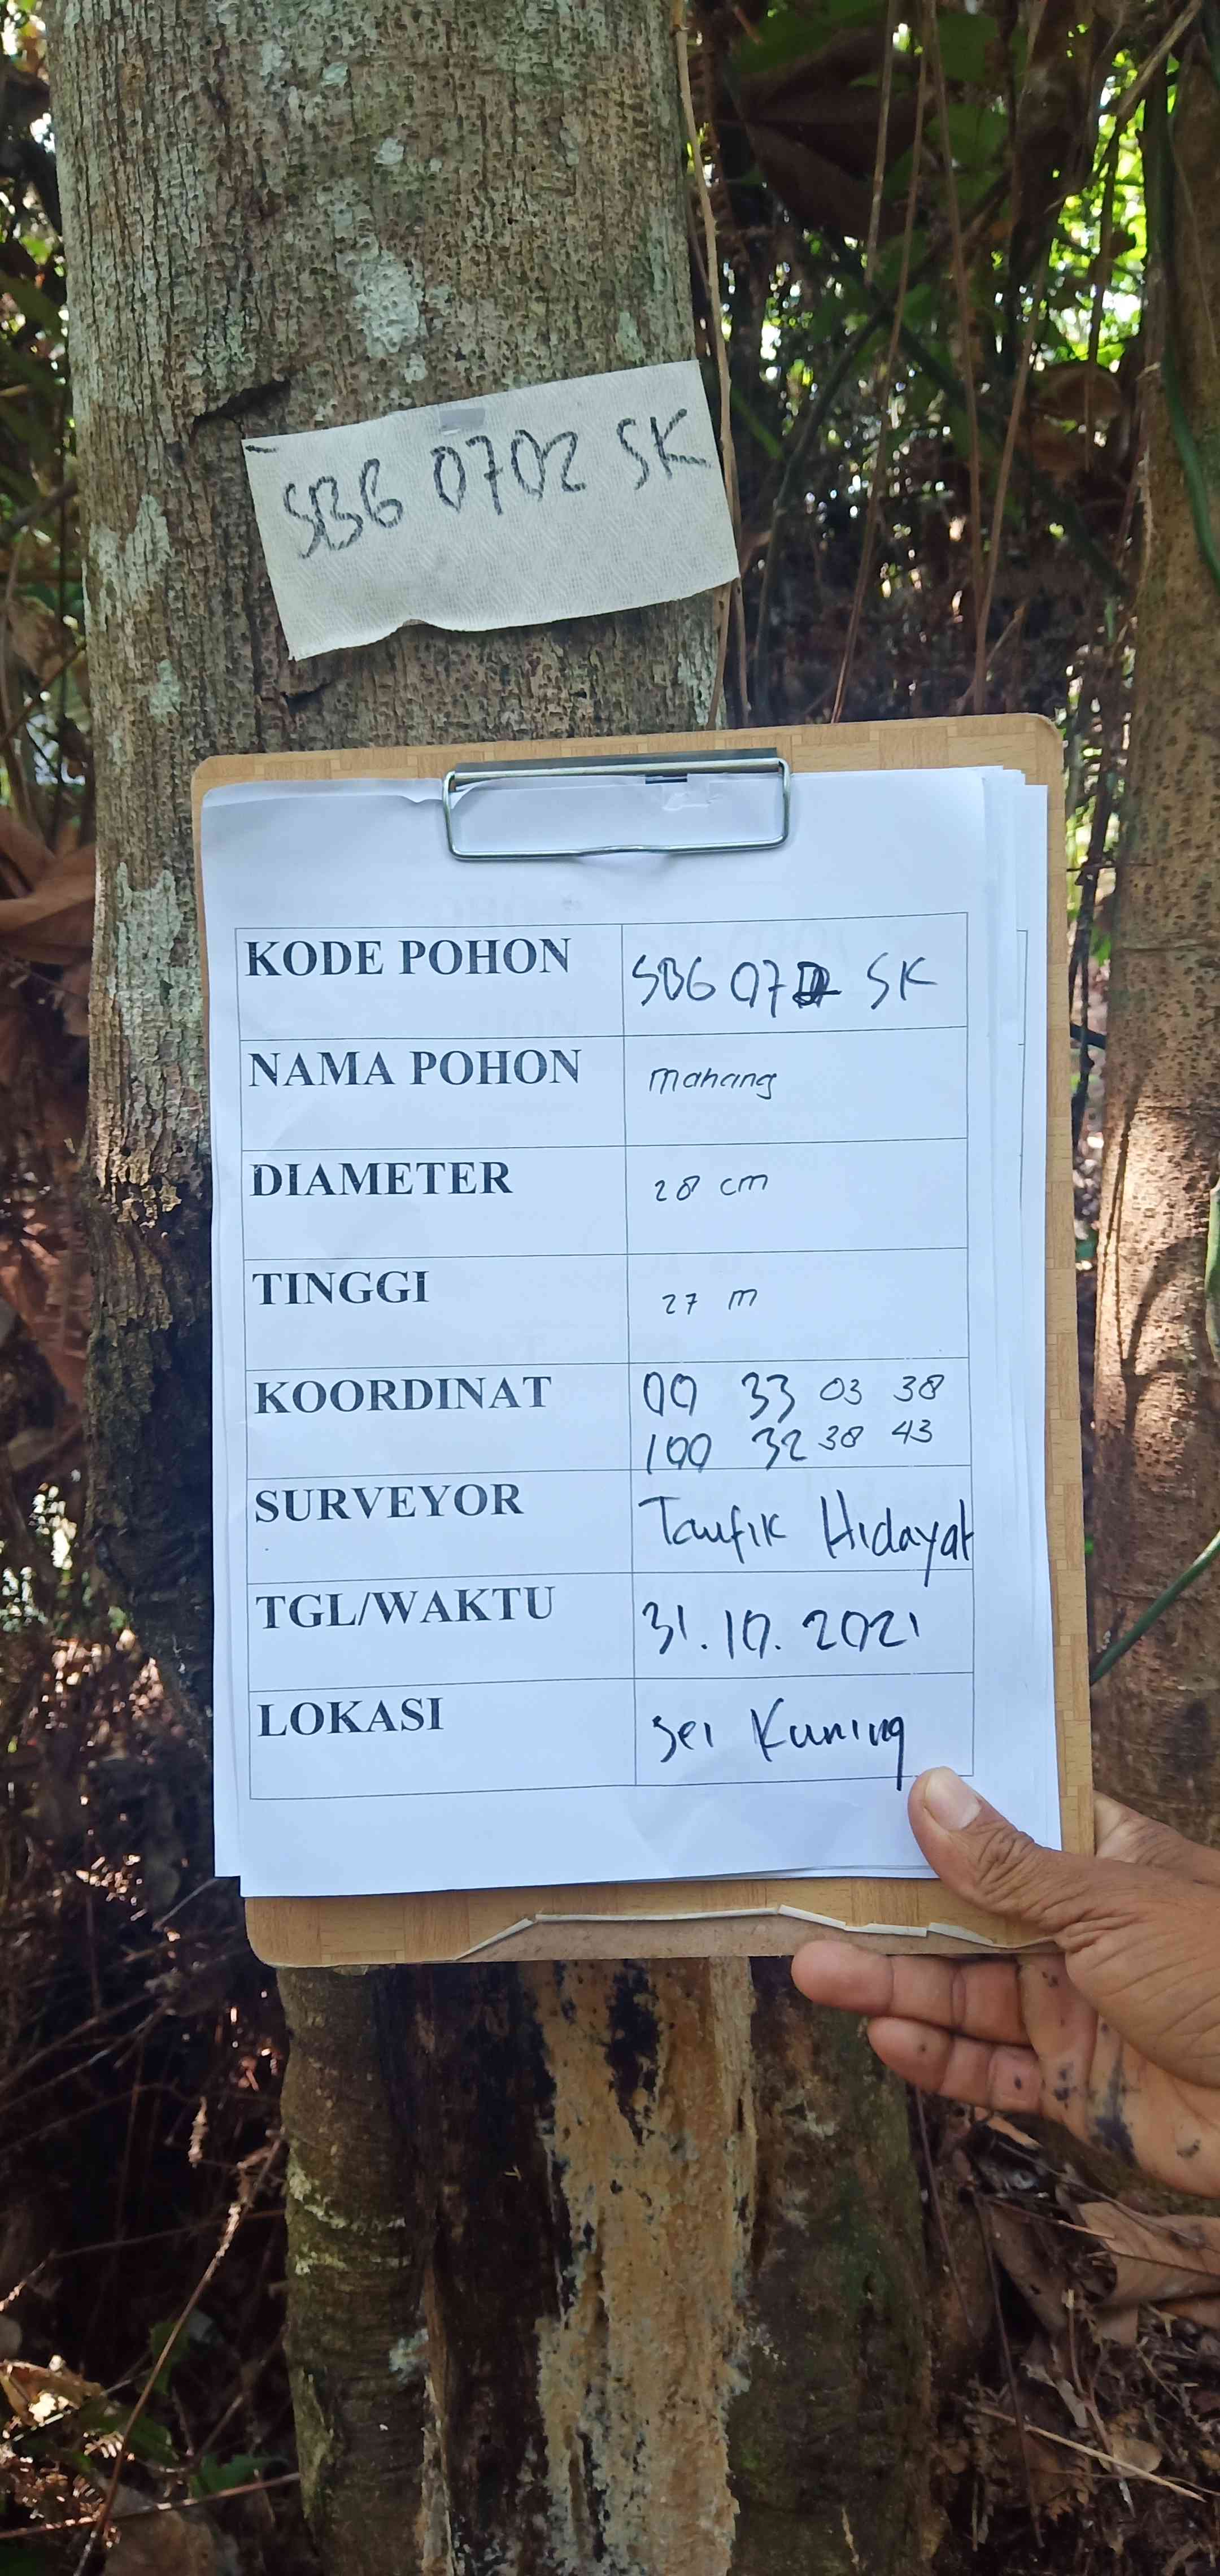 SBG 0702 SK
KODE POHON SBG 07 SK
NAMA POHON Mahang
DIAMETER 28 cm
TINGGI 27 m
KOORDINAT 00 33 03 38
100 32 38 43
SURVEYOR Taufik Hidayat
TGL/WAKTU 31.10.2021
LOKASI Sei Kuning